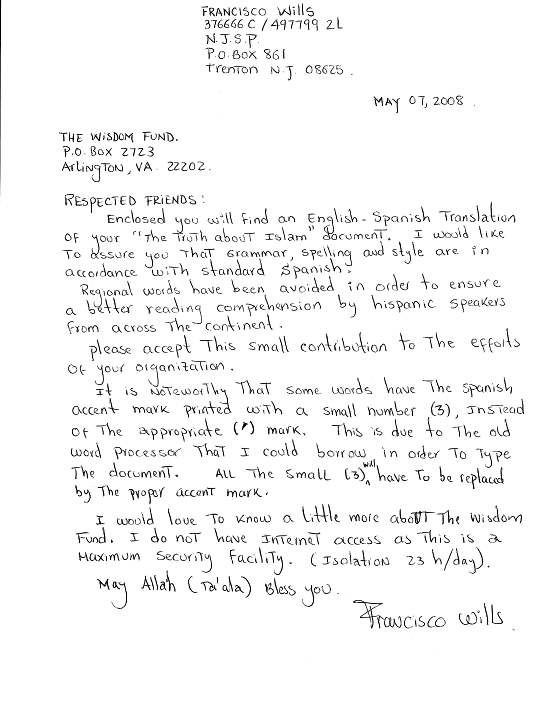 FRANCISCO Wills
376666 C / 497799 2L
N.J.S.P.
P.O.BOX 861
Trenton N.J. 08625.
MAY 07, 2008.
THE WISDOM FUND.
P.O. BOX 2723
ArlingTON, VA. 22202.
RESPECTED FRIENDS:
Enclosed you will find an English-Spanish Translation
OF your "The Truth about Islam" document. I would like
To assure you That Grammar, spelling and style are in
accordance with standard Spanish.
Regional words have been avoided in order to ensure
a better reading comprehension by hispanic speakers
from across The continent.
please accept This small contribution to The efforts
OF your organization.
It is Noteworthy That some words have The Spanish
accent mark printed with a small number (3), Instead
OF The appropriate (') mark. This is due to The old
word processor That I could borrow in order To Type
The document. ALL The small (3) will have To be replaced
by The proper accent mark.
I would love To know a little more about The Wisdom
Fund. I do not have Internet access as This is a
Maximum Security Facility. (Isolation 23 h/day).
May Allah (Ta'ala) Bless you.
Francisco Wills.